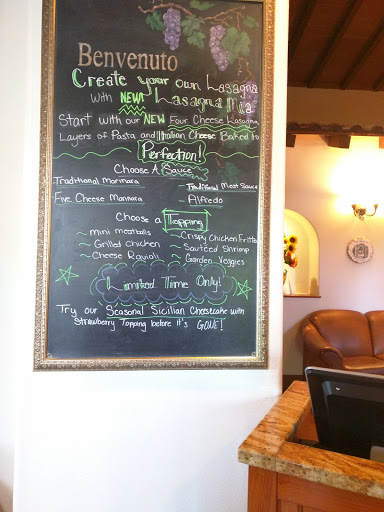 Benvenuto
Create your own Lasagna
with NEW! Lasagna Mia
Start with our NEW Four Cheese Lasagna
Layers of Pasta and Italian Cheese Baked to
Perfection!
Choose A Sauce
Traditional Marinara
- Traditional Meat Sauce
Five Cheese Marinara
- Alfredo
Choose a Topping
~ mini meatballs
~ Crispy Chicken Fritta
~ Grilled Chicken
~ Sautéed Shrimp
~ Cheese Ravioli
~ Garden Veggies
Limited Time Only!
Try our Seasonal Sicilian Cheesecake with
Strawberry Topping before it's GONE!